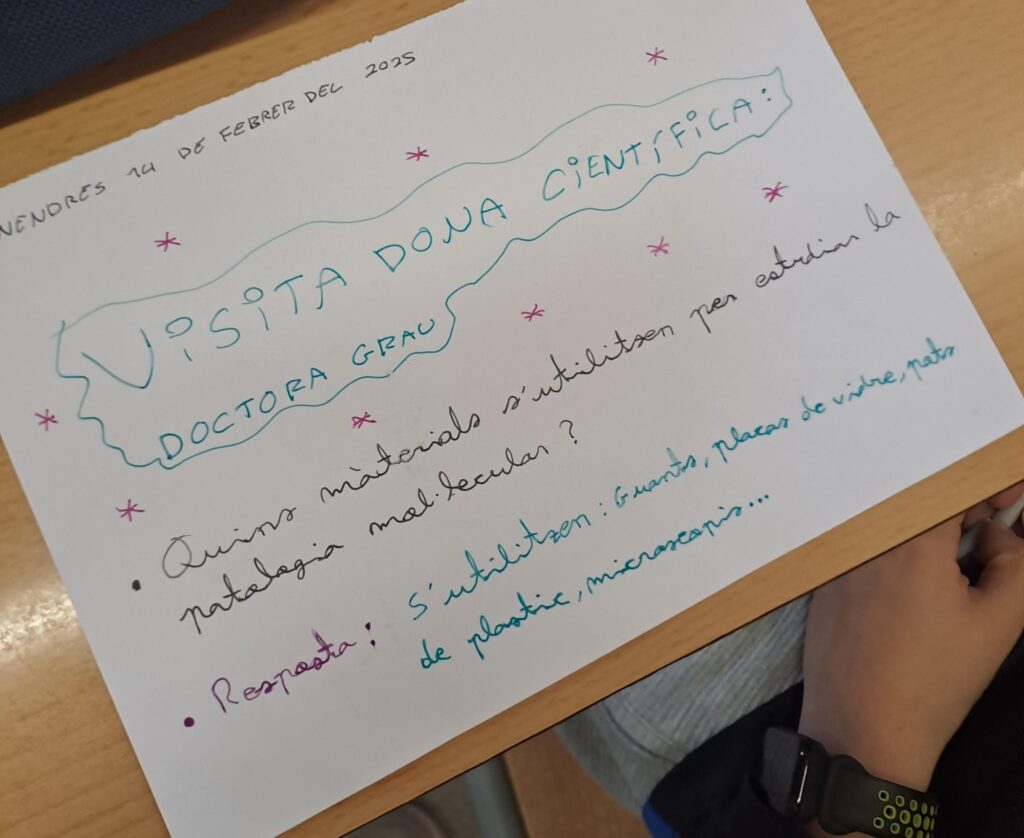 VENDRES 14 DE FEBRER DEL 2025
VISITA DONA CIENTÍFICA:
DOCTORA GRAU
• Quins màterials s'utilitzen per estudiar la
patologia mol·lecular?
• Resposta: S'utilitzen: Guants, placas de vidre, pots
de plastic, microscopis...